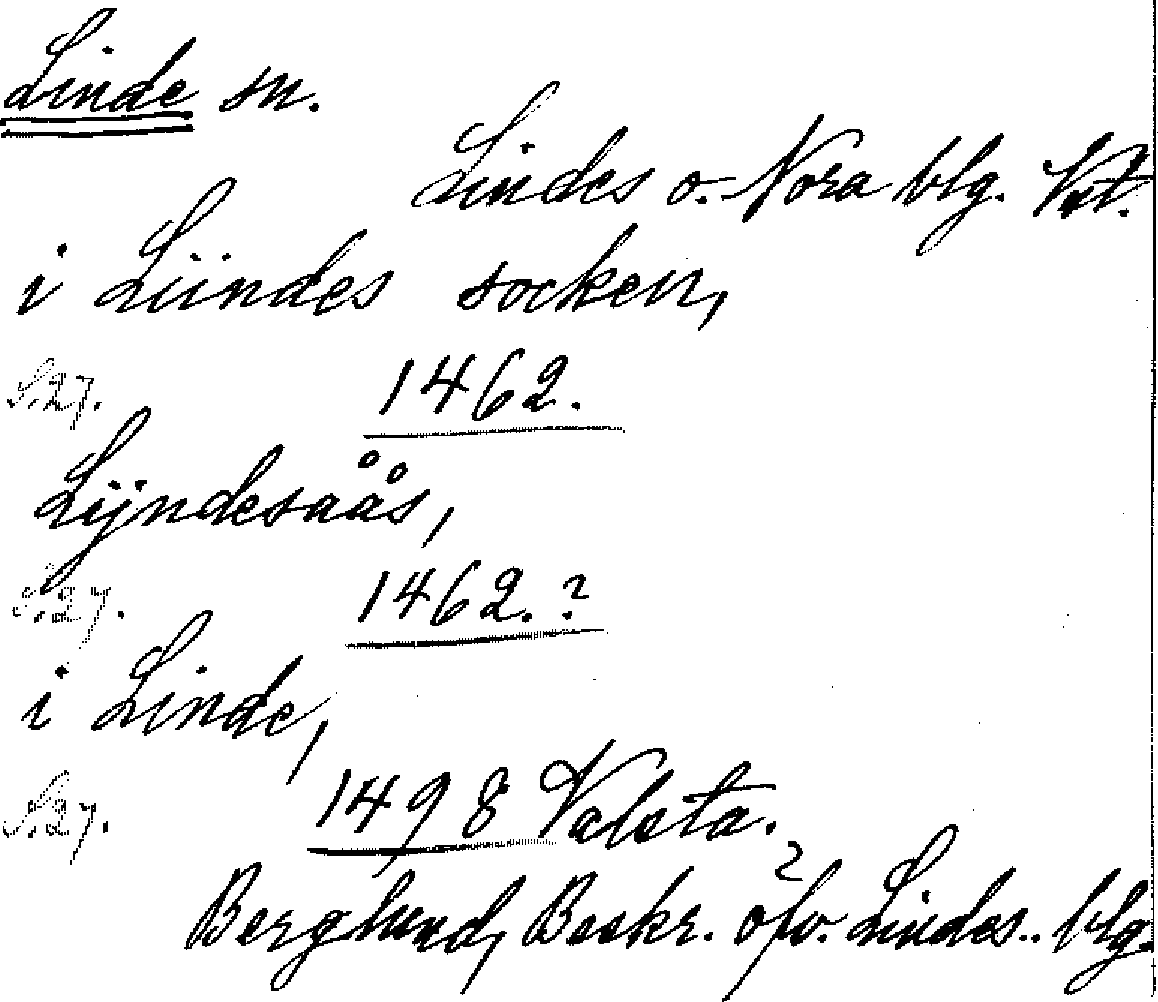 Linde sn.
Lindes o. Nora blg. Vstm.
i Liindes socken,
S.27. 1462.
Lijndesaås,
S.27. 1462.?
i Linde,
S.27. 1498 Valsta.?
Berglund, Beskr. öfv. Lindes.. blg.